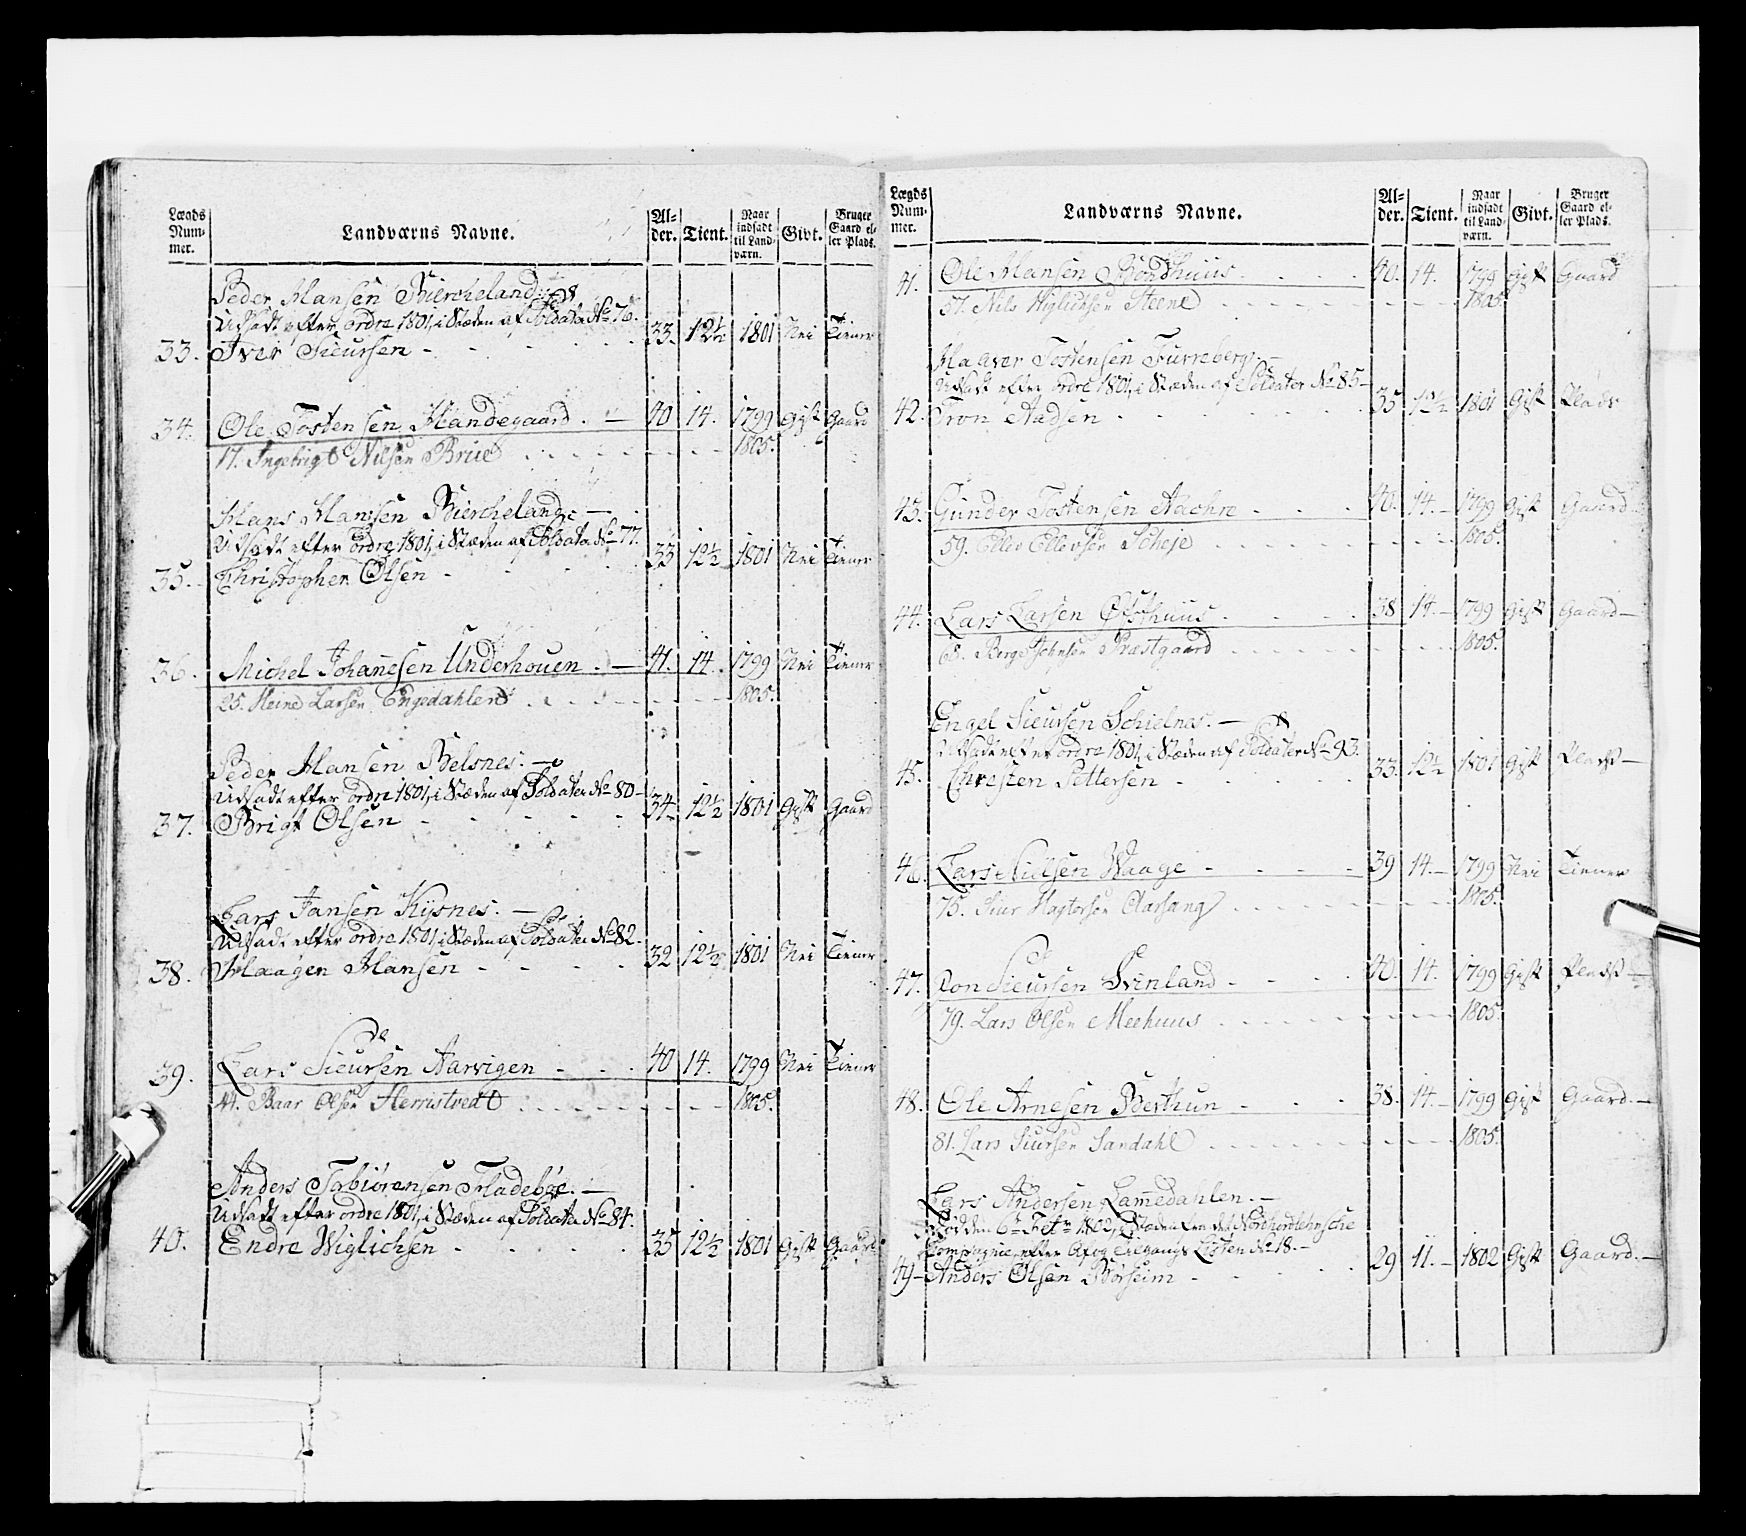 Lægds Num-mer. Landværns Navne. Al-der. Tient. Naar indsadt til Land-værn. Givt. Bruger Gaard el-ler Plads.
Peder Hansen Biercheland
Udsadt efter ordre 1801, i Stæden af Soldater No 76.
33. Iver Sieursen - 33. 12½ 1801 Nei Tiener
34. Ole Tostensen Handegaard. - 40 14. 1799 Gift Gaard
17. Ingebrigt Nilsen Brue 1805.
Hans Hansen Biercheland. -
Udsadt efter Ordre 1801, i Stæden af Soldater No 77.
35. Christopher Olsen - 33 12½ 1801 Nei Tiener
36. Michel Johanesen Underhouen. - 41. 14. 1799 Nei Tiener
25. Heine Larsen Engedahlen 1805.
Peder Hansen Belsnes. -
Udsadt efter Ordre 1801, i Stæden af Soldater No 80-
37. Brigt Olsen - 34- 12½ 1801 Gift Gaard
Lars Jansen Kysnes. -
Udsadt efter Ordre 1801, i Stæden af Soldater No 82.
38. Haagen Hansen - 32 12½ 1801 Nei Tiener
39. Lars Sieursen Aarvigen - 40 14. 1799 Nei Tiener
44. Baar Olsen Herristvedt 1805.
Anders Torbiørensen Fladebøe. -
Udsadt efter ordre 1801, i Stæden af Soldater No 84.
40. Endre Wiglichsen - 35 12½ 1801 Gift Gaard
Lægds Num-mer. Landværns Navne. Al-der. Tient. Naar indsadt til Land-værn. Givt. Bruger Gaard el-ler Plads.
41. Ole Hansen Bondhuus 40. 14. 1799 Gift Gaard
57. Nils Wiglichsen Steene 1805.
Haaver Tostensen Furreberg. -
Udsadt efter ordre 1801, i Stæden af Soldater No 85-
42. Tron Aadsen 35 12½ 1801 Gift Plads
43. Gunder Tostensen Aachre 40. 14.- 1799 Gift Gaard
59. Ellev Ellevsen Scheje 1805.
44. Lars Larsen Øfsthuus 38 14.- 1799 Gift Gaard-
68. Børge Johnsen Præstgaard 1805.
Engel Sieursen Schielnes. -
Udsadt efter ordre 1801, i Stæden af Soldater No 93.
45. Christen Pettersen - 33. 12½ 1801 Gift Plads-
46. Lars Nielsen Waage - 39 14.- 1799 Nei Tiener
75. Siur Hagtorsen 1805.
47. Don Sieursen Svinland - 40. 14. 1799 Gift Plads-
79. Lars Olsen Meehuus 1805.
48. Ole Arnesen Berthun - 38. 14.- 1799 Gift Gaard.-
81. Lars Siursen Sandahl 1805.
Lars Andersen Lamedahlen. -
den 6te Febr 1802, i Stæden fra det Nordhordlehnsche
Compagnie, efter Afog Tilgangs Listen No 18. -
49- Anders Olsen Børseim - 29 11.- 1802 Gift Gaard.-